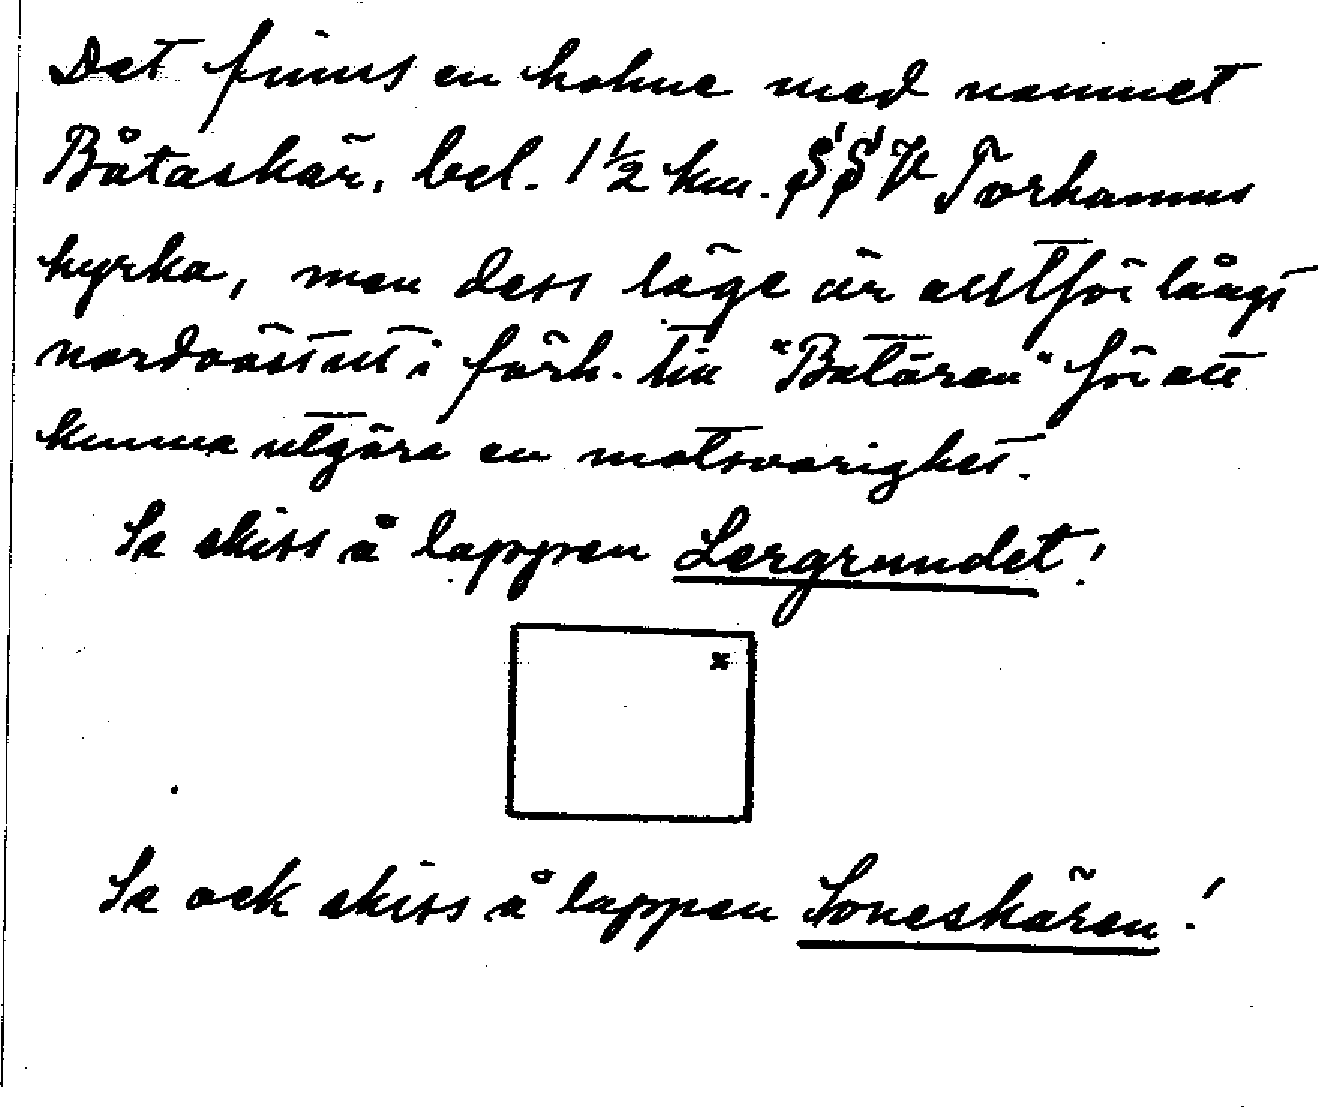 Det finns en holme med namnet
Båtaskär, bel. 1½ km. SSV Torhamns
kyrka, men dess läge är alltför långt
nordvästut i förh. till "Batören" för att
kunna utgöra en motsvarighet.
Se skiss å lappen Lergrundet!
x
Se ock skiss å lappen Soneskären!